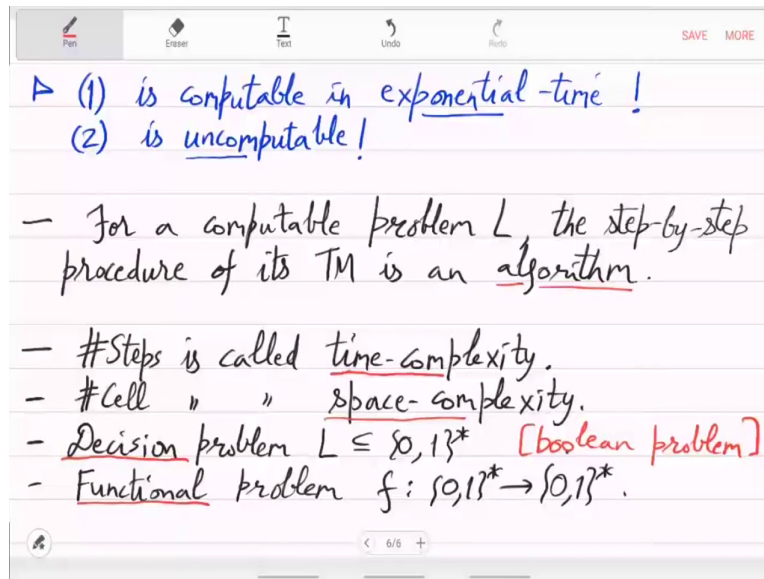 Pen Eraser Text Undo Redo SAVE MORE
(1) is computable in exponential-time !
(2) is uncomputable !
— For a computable problem L, the step-by-step
procedure of its TM is an algorithm.
— #Steps is called time-complexity.
- #Cell " " space-complexity.
- Decision problem L ⊆ {0,1}* [boolean problem]
- Functional problem f : {0,1}* → {0,1}*.
< 6/6 +